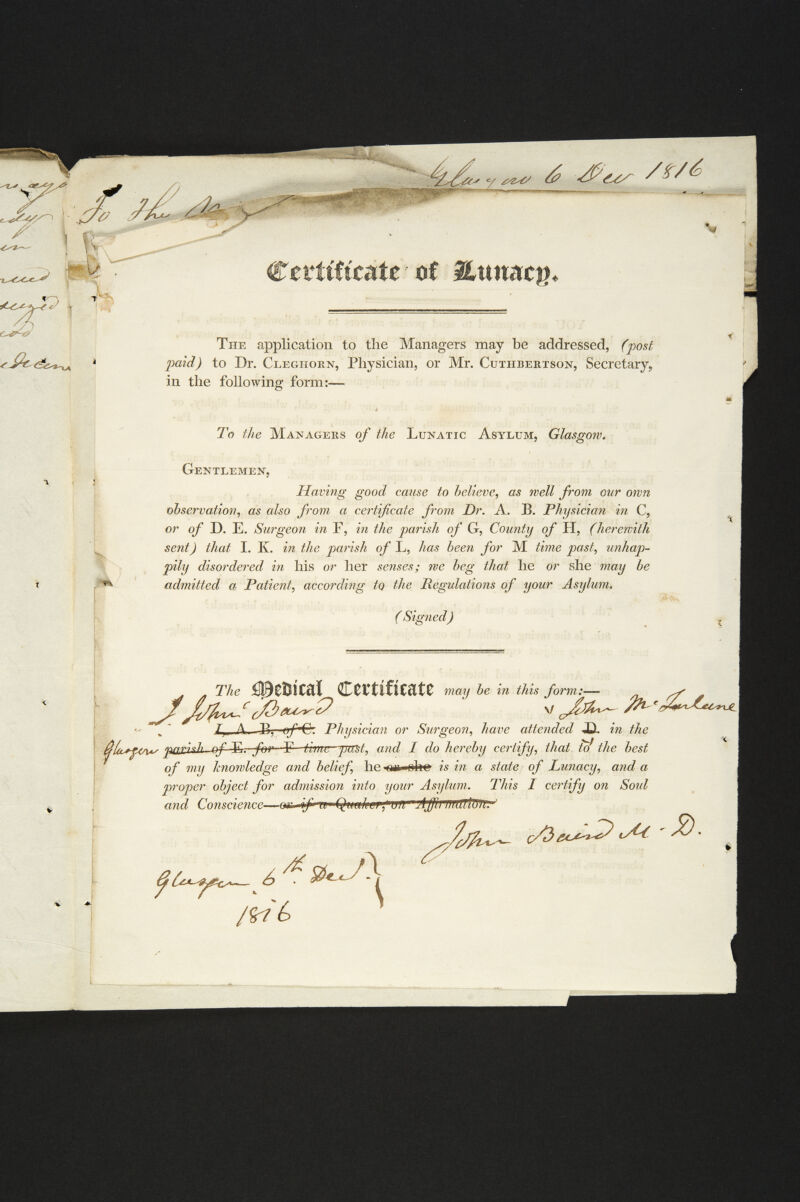 Glasgow 6 Decr 1816
To The
Certificate of Lunacy.
THE application to the Managers may be addressed, (post
paid) to Dr. CLEGHORN, Physician, or Mr. CUTHBERTSON, Secretary,
in the following form:—
To the MANAGERS of the LUNATIC ASYLUM, Glasgow.
GENTLEMEN,
Having good cause to believe, as well from our own
observation, as also from a certificate from Dr. A. B. Physician in C,
or of D. E. Surgeon in F, in the parish of G, County of H, (herewith
sent) that I. K. in the parish of L, has been for M time past, unhap-
pily disordered in his or her senses; we beg that he or she may be
admitted a Patient, according to the Regulations of your Asylum.
(Signed)
The Medical Certificate may be in this form:—
I John Baird John McFarlane
I, A. B, of C. Physician or Surgeon, have attended D. in the
Glasgow parish of E. for F time past, and I do hereby certify, that to the best
of my knowledge and belief, he or she is in a state of Lunacy, and a
proper object for admission into your Asylum. This I certify on Soul
and Conscience—or if a Quaker, on Affirmation.
John Baird M.D.
Glasgow 6th. Decr.
1816